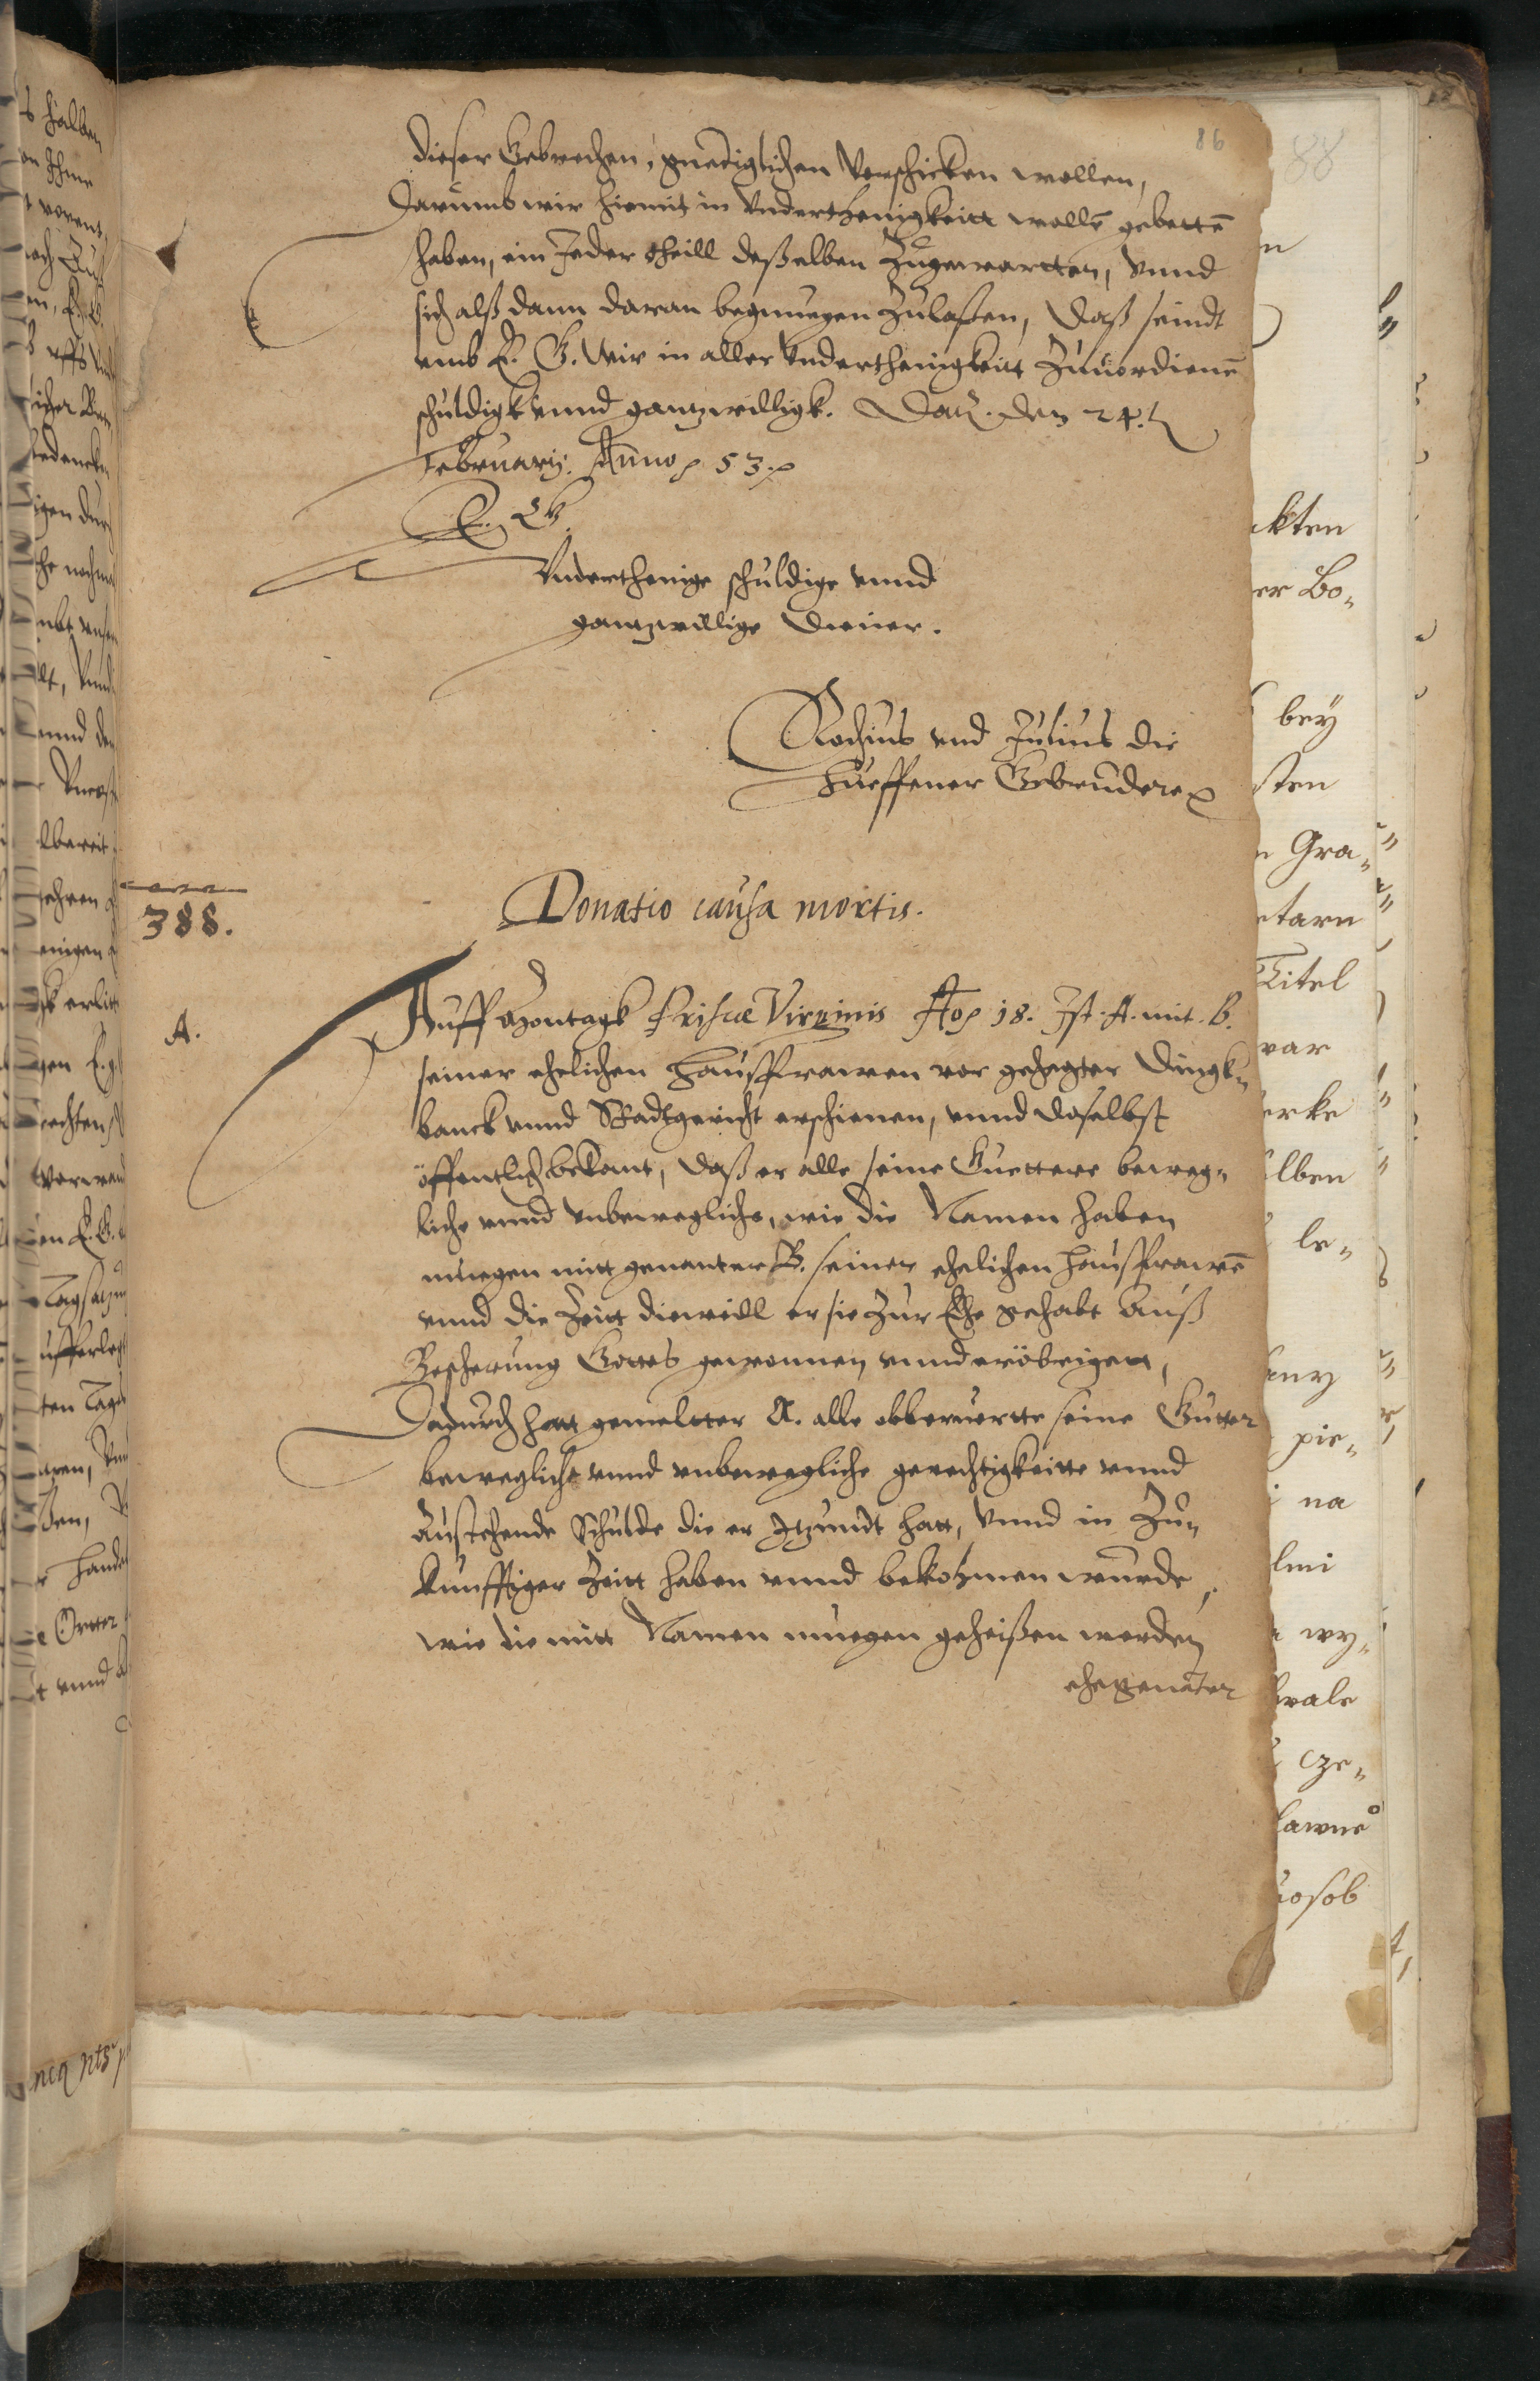 86
88
dieser Gebrechen, gnediglichen Verschicken wollen,
Darumb wir hiemit in Underthenigkeitt wollē gebettē
haben, ein Jeder theill deßelben Zugewartten, Vnnd
sich alß dann daran begnuegen Zulaßen, Daß seindt
umb E. G. Wir in aller Underthenigkeitt Zuuordienē
schuldigk vnnd gantzwilligk. Dat. den 24.
Februarij. Anno 53.
E. G.
Underthenige schuldige vnnd
gantzwillige Diener.
Rochius vnd Julius die
Gebrudere
388.
Donatio causa mortis.
A.
Auff Montagk Priscæ Virginis Ao 18. Ist. A. mit. B.
seiner ehelichen Haußfrawen vor gehegter Dingk„
banck vnnd Stadtgericht erschienen, vnnd doselbst
öffentlich bekant, daß er alle seine Guettere beweg„
liche vnnd vnbewegliche, wie die Namen haben
muegen mitt genanter B. seiner ehelichen Haußfrawē
vnnd die Zeitt dieweill er sie Zur Ehe gehabt Auß
Bescherung Gottes gewonnen vnnd erobrigen,
Dadurch hatt gemeltter A. alle obberuertte seine Gutter
bewegliche vnnd vnbewegliche gerechtigkeitte vnnd
Austehende Schulde die er Itzundt hatt, Vnnd in Zu„
kunfftiger Zeitt haben vnnd bekohmen wurde,
wie die mitt Namen muegen geheißen werden
ehegenāter